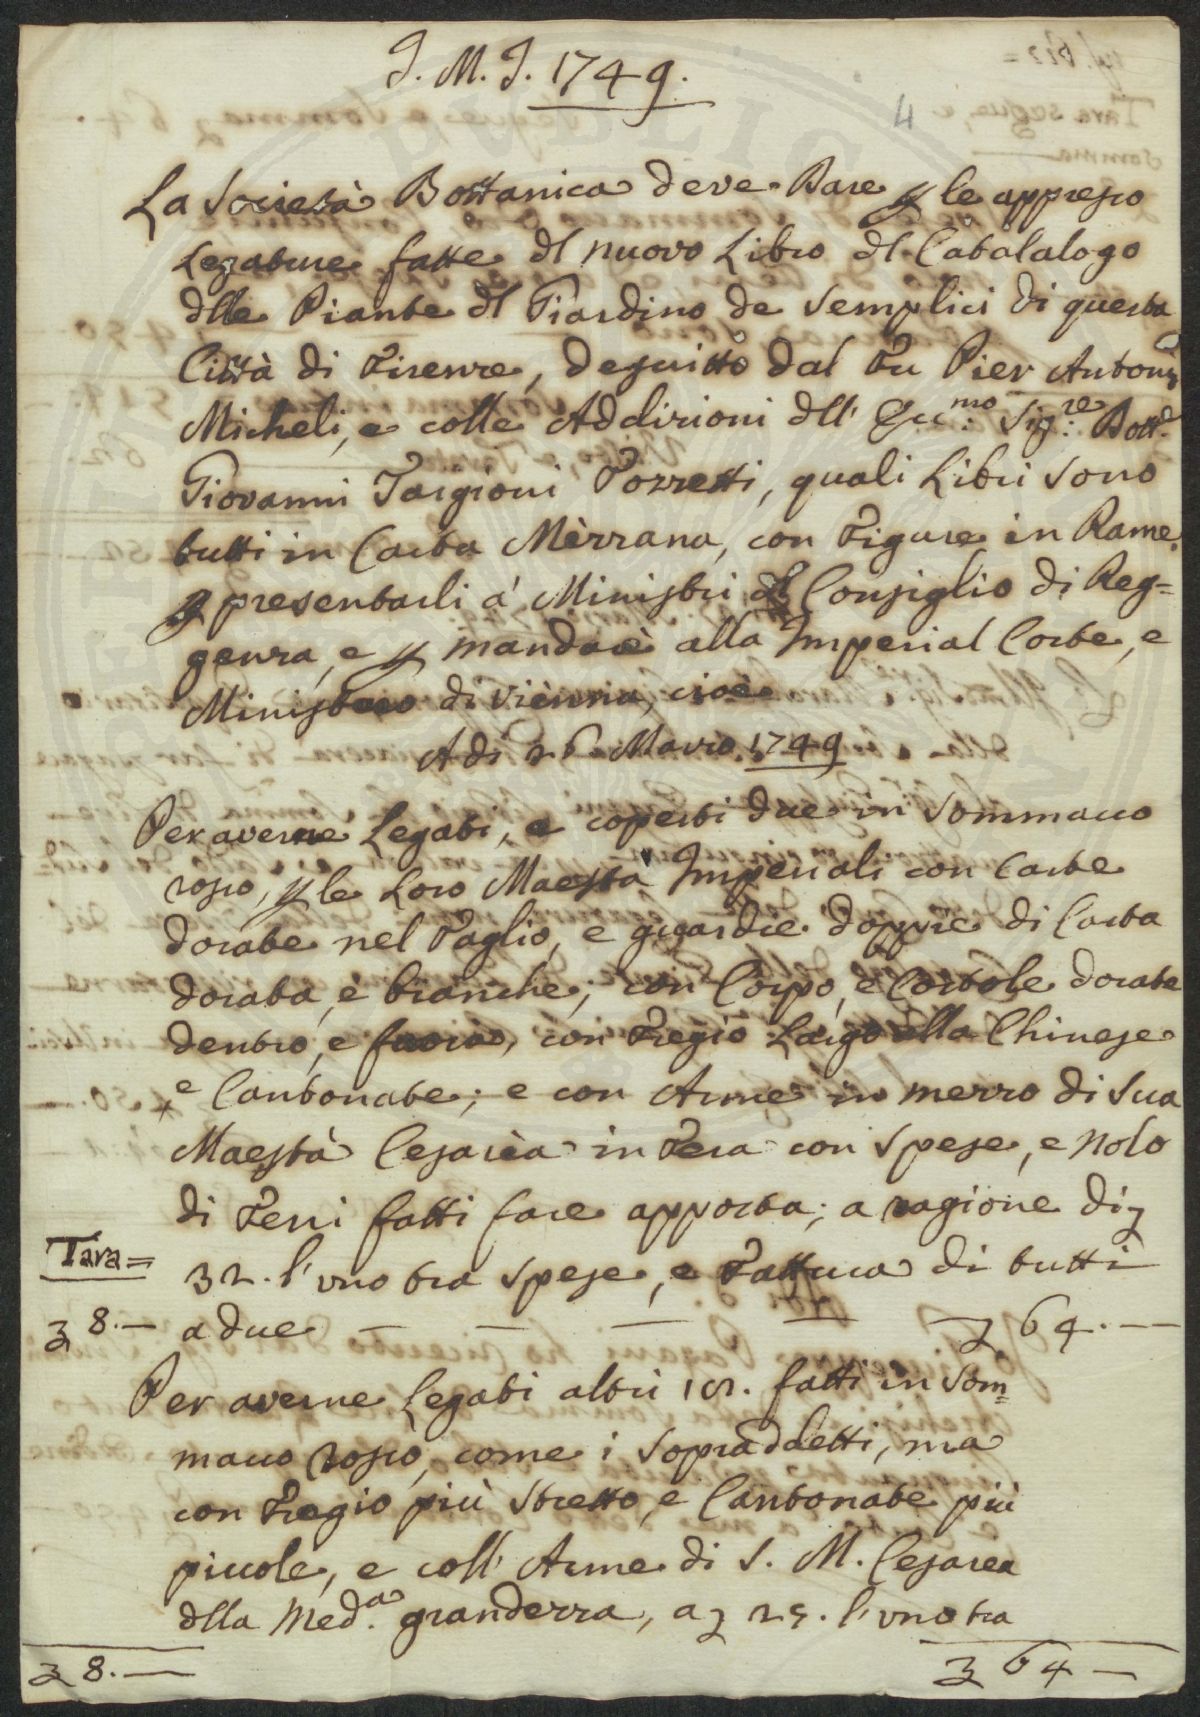 J. M. J. 1749.
4
La Società Bottanica deve Dare p le appresso
Legature fatte dl nuovo Libro dl Catalalogo
dlle Piante dl Giardino de Semplici di questa
Città di Firenze, descritto dal Fu Pier Antonio
Micheli, e colle Addizioni dll' Ecc:mo Sig:re Dott:
Giovanni Targioni Tozzetti, quali Libri sono
tutti in Carta Mezzana, con Figure in Rame,
p presentarli a' Ministri dl Consiglio di Reg=
genza, e p mandare alla Imperial Corte, e
Ministero di Vienna, cioè
Adi 26. Marzo. 1749
Per averne Legati, e coperti due in Sommacco
rosso, p le Loro Maestà Imperiali con Carte
dorate nel Taglio, e guardie doppie di Carta
dorata, e bianche; con Corpo, e Costole dorate
dentro, e fuora, con Fregio Largo alla Chinese
e Cantonate; e con Arme in mezzo di Sua
Maestà Cesarea intera con Spese, e Nolo
di Ferri fatti fare apposta; a ragione di z
Tara=
32. l'uno tra Spese, e Fattura di tutti
z 8.—
a due — — — — z 64.—
Per averne Legati altri 12. fatti in Som=
macco rosso, come i Sopraddetti, ma
con Fregio più Stretto, e Cantonate più
piccole, e coll' Arme di S. M. Cesarea
dlla Med.a grandezza, a z 25. l'uno tra
z 8.—
z 64—